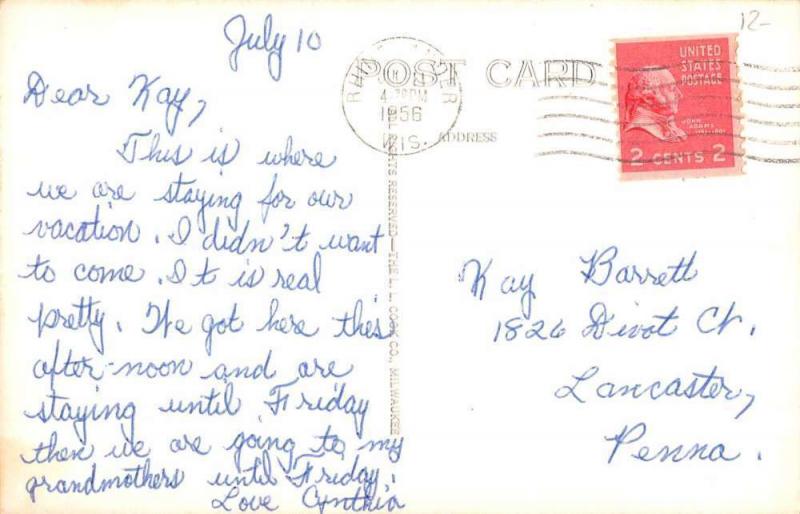 July 10
Dear Kay,
This is where
we are staying for our
vacation. I didn't want
to come. It is real
pretty. We got here this
after-noon and are
staying until Friday
then we are going to my
grandmothers until Friday.
Love Cynthia
12-
POST CARD
ADDRESS
4 PM
1956
WIS.
UNITED
STATES
POSTAGE
JOHN
ADAMS
2 CENTS 2
ALL RIGHTS RESERVED—THE L. L. COOK CO., MILWAUKEE
Kay Barrett
1826 Divot Ct.
Lancaster,
Penna.